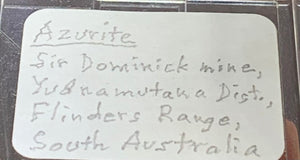 Azurite
Sir Dominick mine,
Yudnamutana Dist.,
Flinders Range,
South Australia